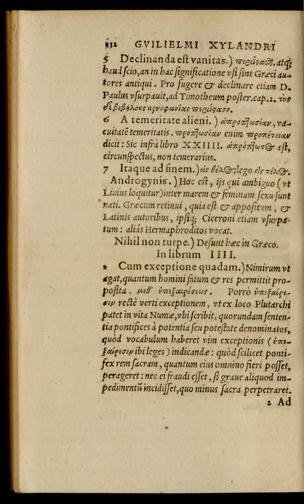 332 GVILIELMI XYLANDRI
5 Declinanda est vanitas.) περιΐστασθ. atqȝ
haud scio, an in hac significatione vsi sint Græci au-
tores antiqui. Pro fugere & declinare etiam D.
Paulus vsurpauit, ad Timotheum poster. cap. 2. τὰς
δὲ βεβήλους κενοφωνίας περιΐστασο.
6 A temeritate alieni.) ἀπροπτωσίαν, va-
cuitatē temeritatis. προπτωσίαν enim προπέτειαν
dicit: Sic infrà libro XXIIII. ἀπρόπτωτος est,
circunspectus, non temerarius.
7 Itaque ad finem.) εἰς βίλος: lego εἰς τέλος.
Androgynis.) Hoc est, ijs qui ambiguo (vt
Liuius loquitur) inter marem & fœminam sexu sunt
nati. Græcum retinui, quia est & appositum, &
Latinis autoribus, ipsiqȝ Ciceroni etiam vsurpa-
tum: aliâs Hermaphroditos vocat.
Nihil non turpe.) Desunt hæc in Græco.
In librum IIII.
Cum exceptione quadam.) Nimirum vt
agat, quantum homini situm & res permittit pro-
posita. μεθ' ὑπεξαιρέσεως. Porrò ὑπεξαίρε-
σιν rectè verti exceptionem, vt ex loco Plutarchi
patet in vita Numæ, vbi scribit, quorundam senten-
tia pontifices à potentia seu potestate denominatos,
quòd vocabulum haberet vim exceptionis (ὑπε-
ξαίρεσιν ibi leges) indicandæ: quòd scilicet ponti-
fex rem sacram, quantum eius omnino fieri posset,
perageret: nec ei fraudi esset, si graue aliquod im-
pedimentū incidisset, quo minus sacra perpetraret.
2 Ad